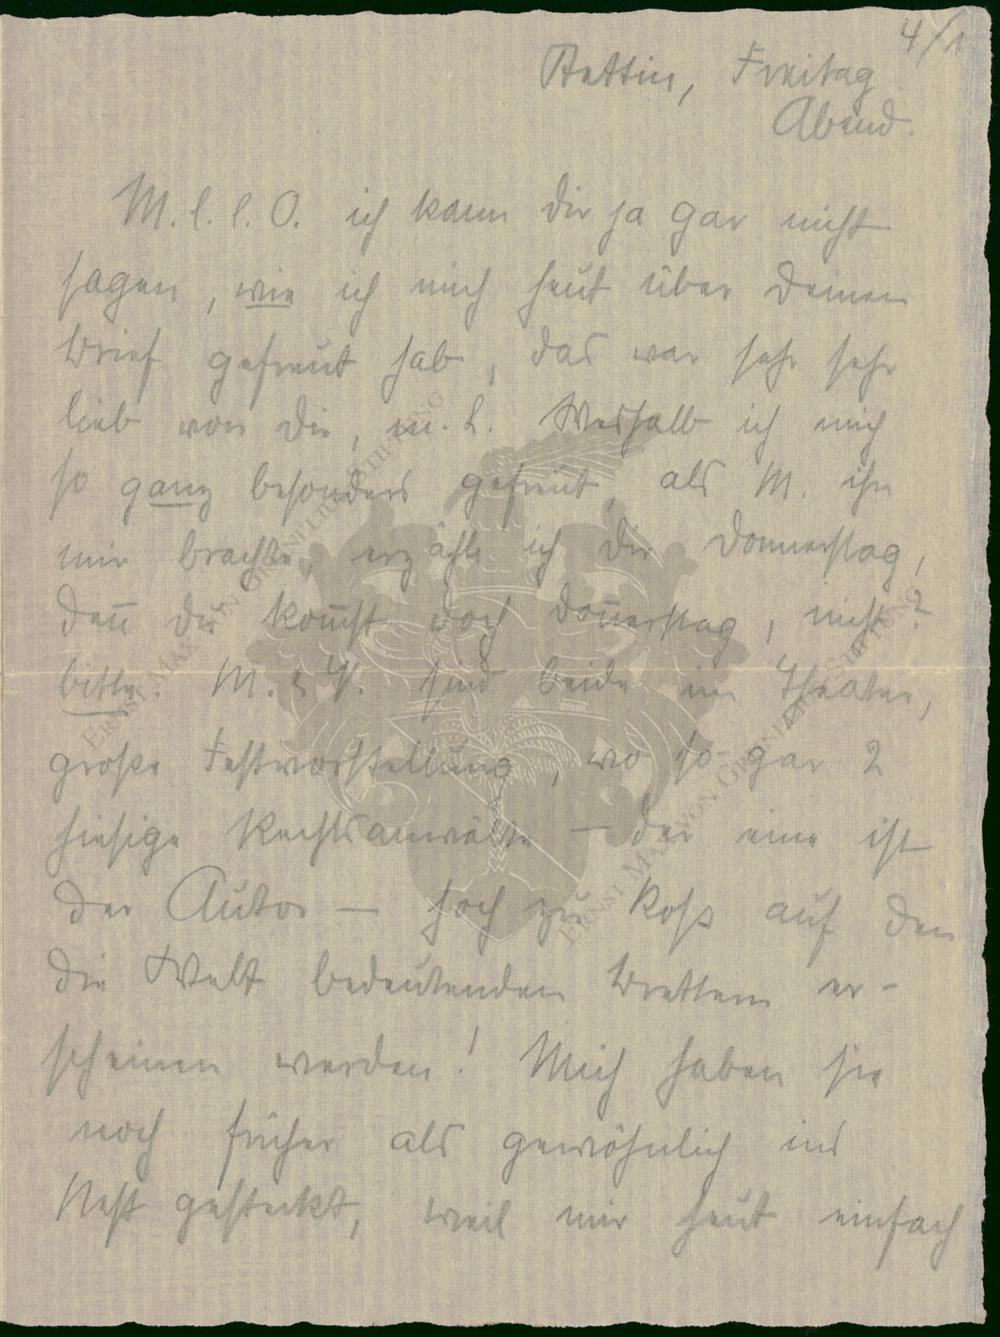 4/1
Stettin, Freitag
Abend.
M. l. l. O. ich kann dir ja gar nicht
sagen, wie ich mich heut über deinen
Brief gefreut hab, das war sehr sehr
lieb von dir, m. L. Weshalb ich mich
so ganz besonders gefreut, als M. ihn
mir brachte, erzähle ich dir Donnerstag,
deñ du kom̃st doch Doñerstag, nicht?
bitte! M. & V. sind beide im Theater,
große Festvorstellung, wo so gar 2
hiesige Rechtsanwälte – der eine ist
der Autor – hoch zu Roß auf den
die Welt bedeutenden Brettern er-
scheinen werden! Mich haben sie
noch früher als gewöhnlich ins
Nest gesteckt, weil mir heut einfach
ERNST MAX VON GRUNELIUS-STIFTUNG
ERNST MAX VON GRUNELIUS-STIFTUNG